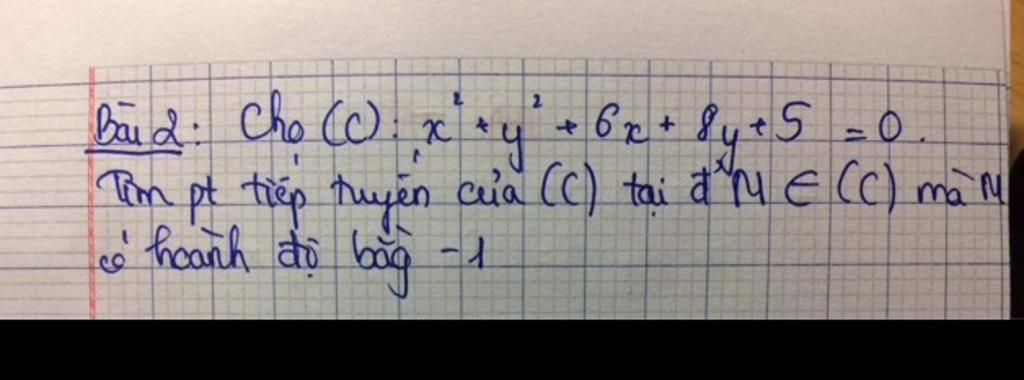 Bài 2: Cho (C): x² + y² + 6x + 8y + 5 = 0.
Tìm pt tiếp tuyến của (C) tại đ' M ∈ (C) mà M
có hoành độ bằng -1